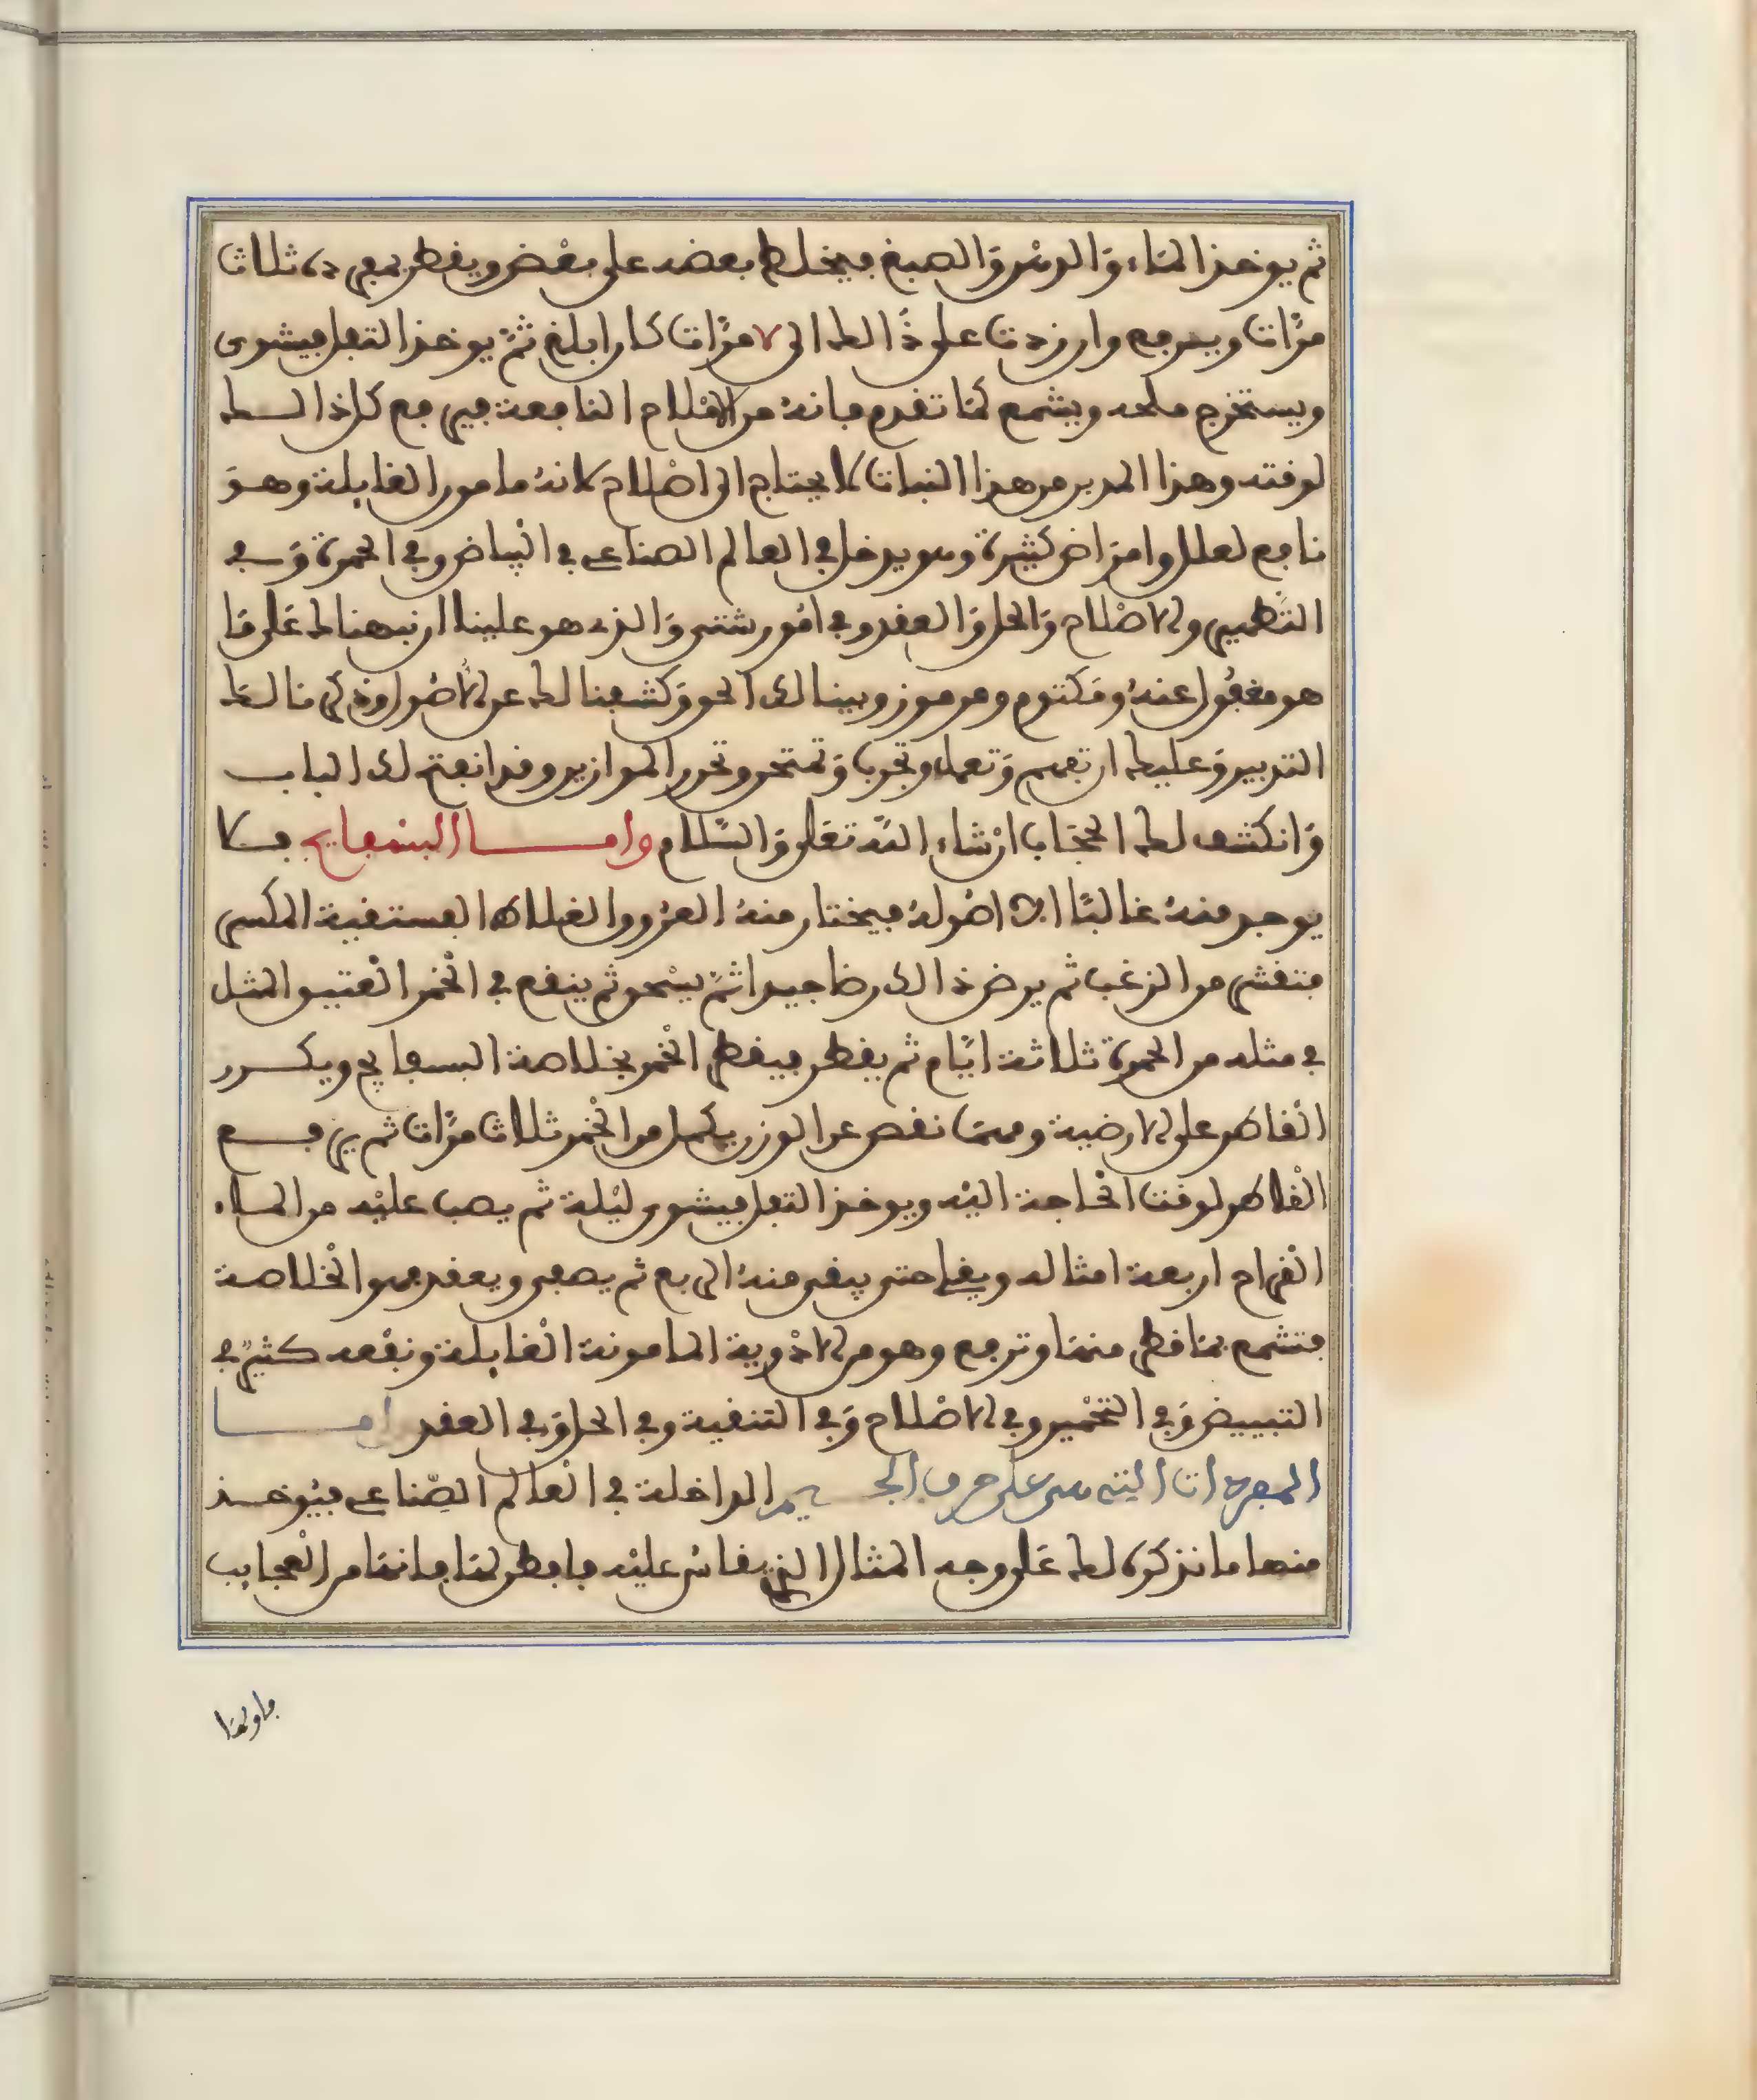 ثم يوخذ الماء والدهن والصبغ فيخلط بعضه على بعض ويقطر بمفرده ثلاث
مرات ويرفع وان زدت على ذالك الى ٧ مرات كان ابلغ ثم يوخذ الثفل فيشوى
ويستخرج ملحه ويشمع كما تقدم فانه من الاملاح النافعة فيرفع كل ذالك
لوقته وهذا المدبر من هذا النبات لا يحتاج الى اصلاح لانه مامون الغايلة وهو
نافع لعلل وامراض كثيرة وهو يدخل في العالم الصناعي في البياض وفي الحمرة وفي
التطهير والاصلاح والحل والعقد وفي امور شتى والذي هو علينا ان نبهناك على ما
هو مغفول عنه ومكتوم ومرموز وبينا لك الحق وكشفنا لك عن الاصول وذكرنا لك
التدبير وعليك ان تفهم وتعمل وتجرب وتمتحن وتحرر الموازين وقد انفتح لك الباب
وانكشف لك الحجاب ان شاء الله تعلى والسلام واما البسفايج فلا
يوجد منه غالبا الا اصوله فيختار منه العروق الغلاظ الفستقية المكسر
فتنقى من الزغب ثم يرض ذالك رضا جيدا ثم يسحق ثم ينقع في الخمر العتيق المثل
في مثله من الحمرة ثلاثة ايام ثم يقطر فيقطر الخمر بخلاصة البسفايج ويكرر
القاطر على الارضية ومهما نقص عن الوزن يكمل من الخمر ثلاث مرات ثم يرفع
القاطر لوقت الحاجة اليه ويوخذ الثفل فيشوى ليلة ثم يصب عليه من الماء
القراح اربعة امثاله ويغلى حتى يبقى منه الربع ثم يصفى ويعقد فهو الخلاصة
فتشمع بما قطر منها وترفع وهو من الادوية المامونة الغايلة ونفعه كثير في
التبييض وفي التخمير وفي الاصلاح وفي التنقية وفي الحل وفي العقد اما
المفردات التي هي على حرف الجيم الداخلة في العالم الصناعي فيوخذ
منها ما نذكره لك على وجه المثال الذي يقاس عليه فافطن لها فانها من العجايب
فاولها